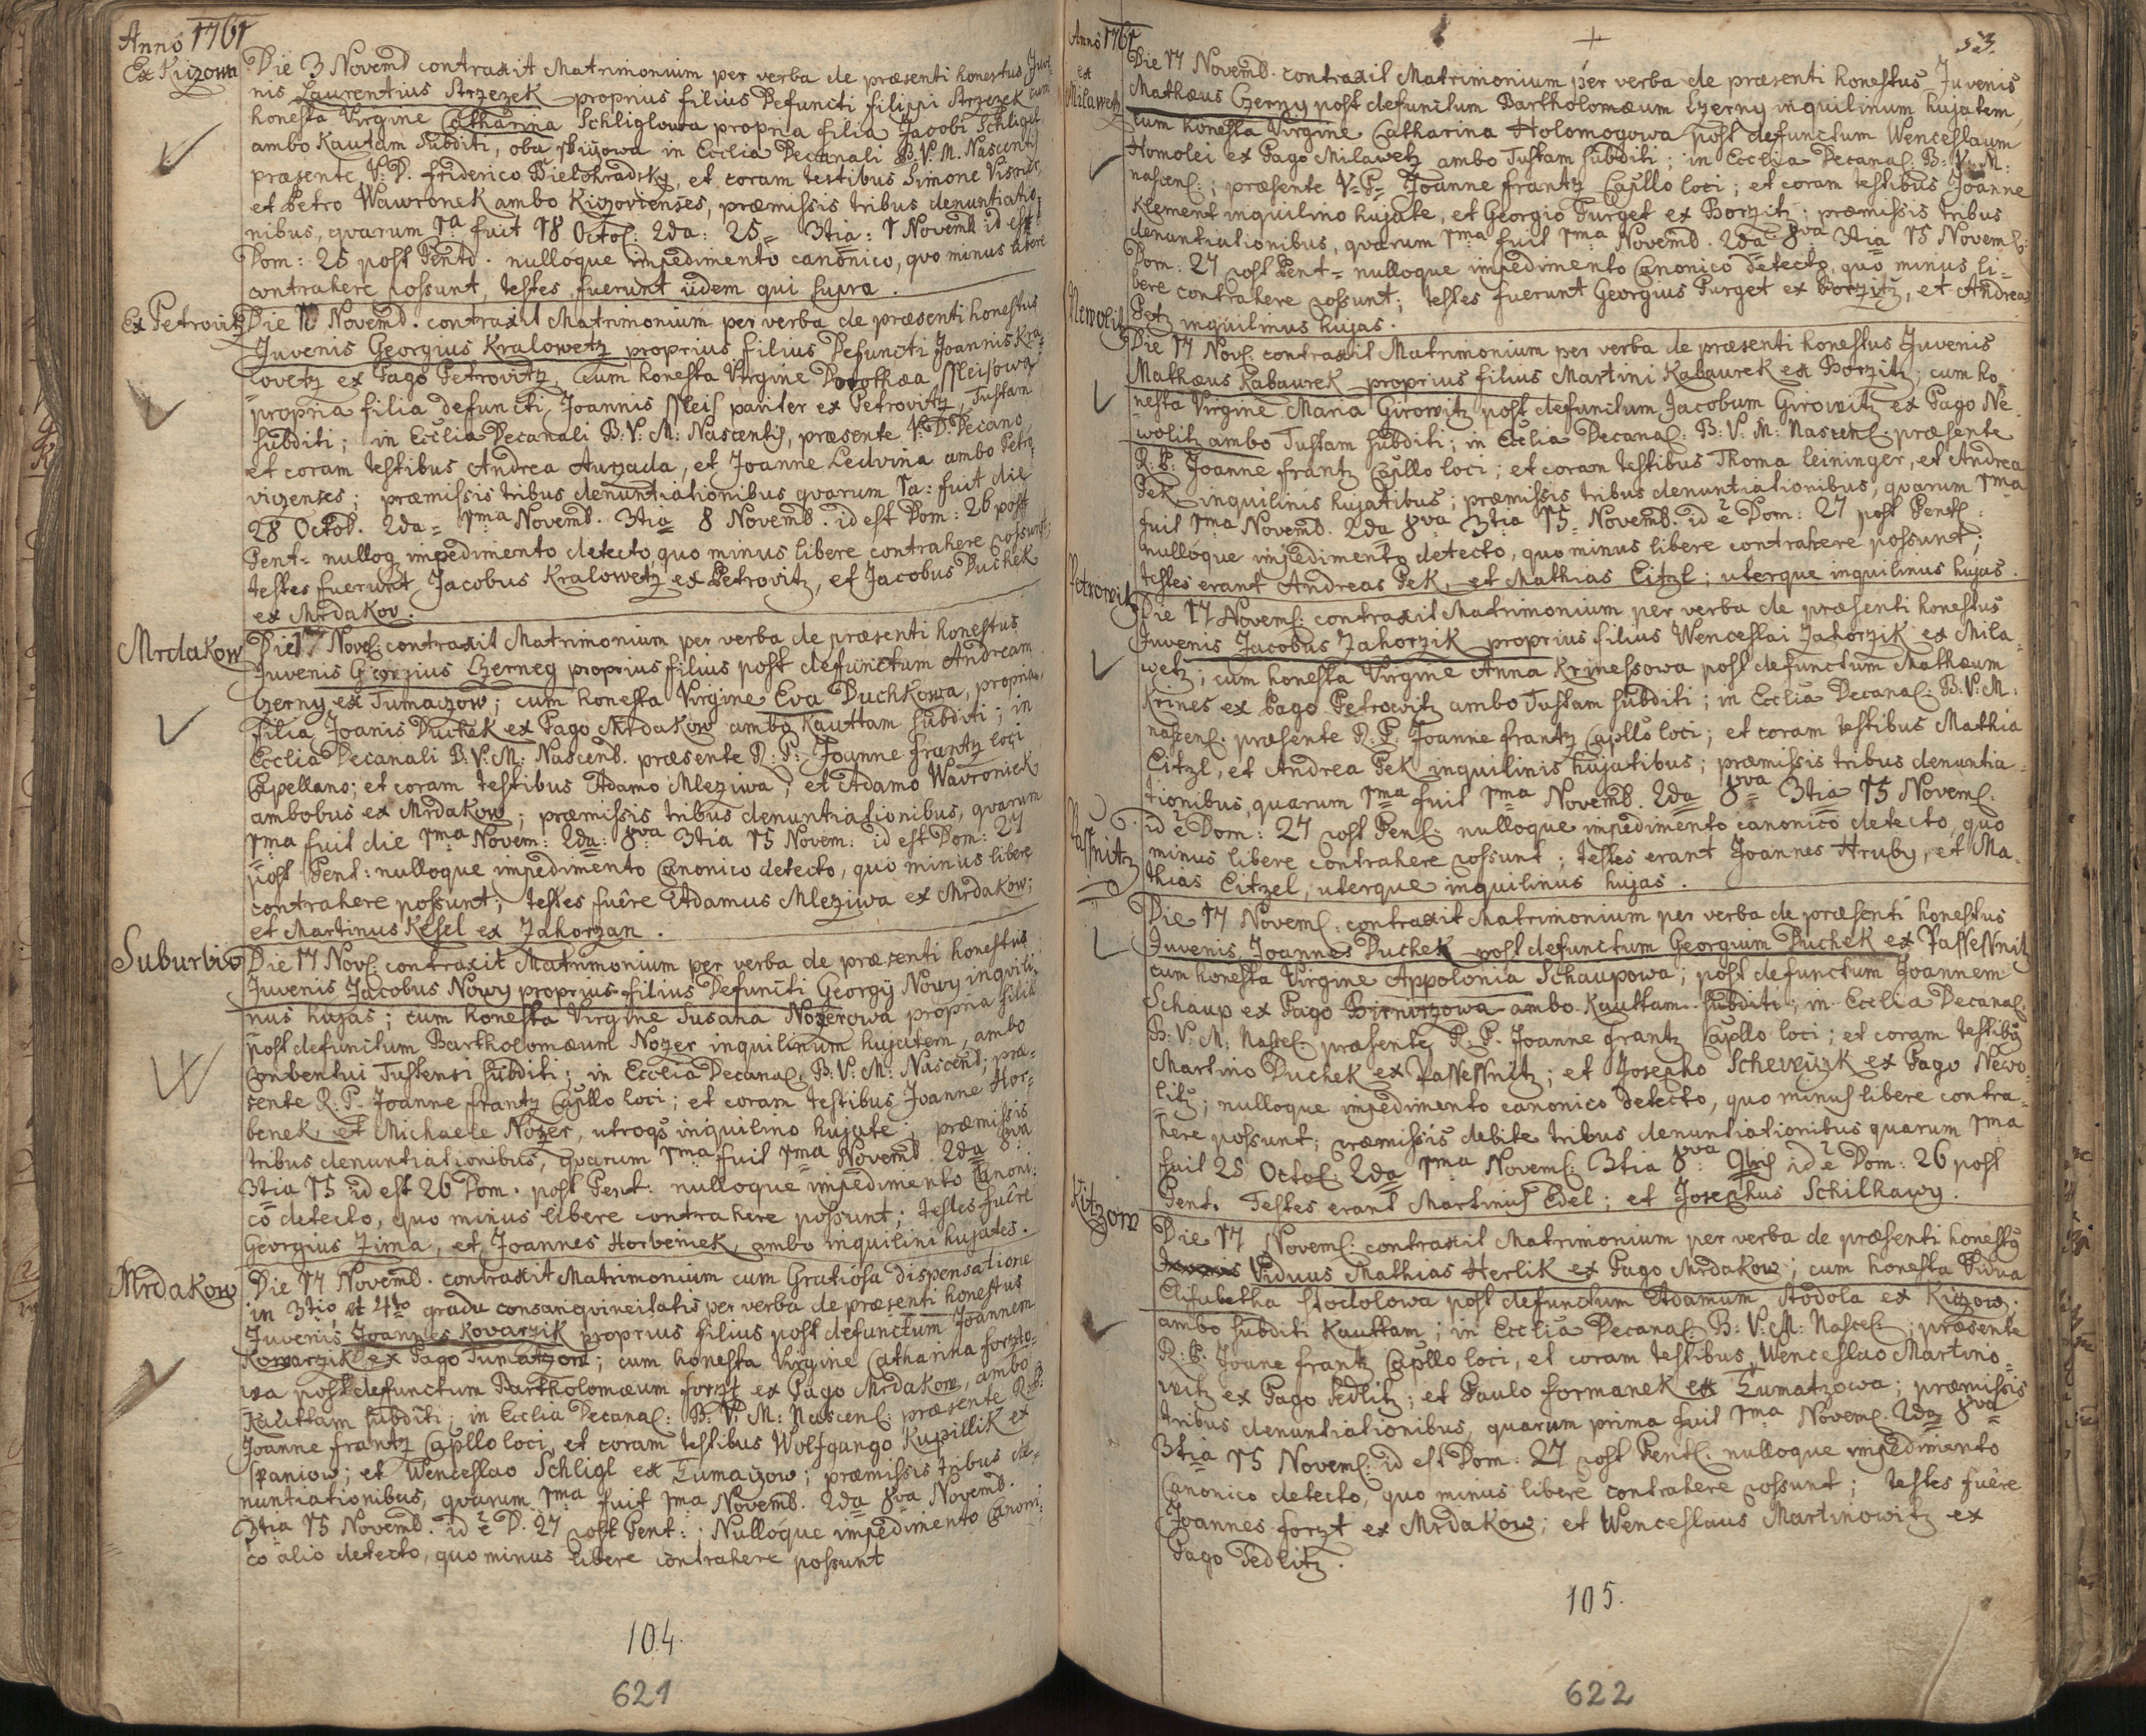 Anno 1761
Ex Kizowa
Die 3 Novemb contraxit Matrimonium per verba de præsenti honestus Juve-
nis Laurentius Strzezek proprius filius Defuncti filippi Strzezek cum
honesta Virgine Catharina Schliglowa propria filia Jacobi Schligel
ambo Kautam Subditi, oba in Ecclia Decanali B.V.M. Nascentis
præsente V.D. friderico Bielohradsky, et coram testibus Simone
et Petro Wawronek ambo Kizovienses, præmissis tribus denuntiatio-
nibus, qvarum 1a fuit 18 Octob: 2da: 25 3tia: 1 Novemb id est
Dom: 25 post Pentd. nulloque impedimento canonico, qvo minus libere
contrahere possunt, testes fuerunt iidem qui supra.
Ex Petrovitz
Die 10 Novemb. contraxit Matrimonium per verba de præsenti honestus
Juvenis Georgius Kralowetz proprius filius Defuncti Joannis Kra-
lovetz ex Pago Petrovitz, cum honesta Virgine Dorothæa ssleisowa
propria filia defuncti Joannis ssleis pariter ex Petrovitz, Tustam
subditi; in Ecclia Decanali B:V:M: Nascentis, præsente V.D. Decano
et coram testibus Andrea Aurzada, et Joanne Ledvina ambo Petro-
vizenses; præmissis tribus denuntiationibus qvarum 1a: fuit die
28 Octob. 2da= 1ma Novemb. 3tia 8 Novemb. id est Dom: 26 post
Pent= nulloq impedimento detecto, quo minus libere contrahere possunt;
testes fuerunt Jacobus Kralowetz ex Petrovitz, et Jacobus Duchek
ex Mrdakov.
Mrdakow
Die 17 Nov. contraxit Matrimonium per verba de præsenti honestus
Juvenis Georgius Czerney proprius filius post defunctum Andream
Czerny ex Tumaczow; cum honesta Virgine Eva Duchkowa, propria
filia Joanis Duchek ex Pago Mrdakow ambo Kauttam subditi; in
Ecclia Decanali B:V:M: Nascend. præsente R:P: Joanne frantz loci
Capellano; et coram testibus Adamo Mleziwa, et Adamo Wavroniek
ambobus ex Mrdakow; præmissis tribus denuntiationibus, qvarum
1ma fuit die 1ma Novem: 2da: 8va 3tia 15 Novem: id est Dom: 27
post Pent: nulloque impedimento Canonico detecto, quo minus libere
contrahere possunt; testes fuêre Adamus Mleziwa ex Mrdakow;
et Martinus Kesel ex Zahorzan.
Suburbio
Die 17 Nov: contraxit Matrimonium per verba de præsenti honestus
Juvenis Jacobus Nowy proprius filius Defuncti Georgÿ Nowy inqvili-
nus hujas; cum honesta Virgine Susana Nozerowa propria filia
post defunctum Bartholomæum Nozer inquilinum hujatem, ambo
Conventui Tustensi subditi; in Ecclia Decanal: B:V:M: Nascent; præ-
sente R.P. Joanne frantz Capllo loci; et coram testibus Joanne Hor-
benek, et Michaele Nozer, utroqs inquilino hujate; præmissis
tribus denuntiationibus, qvarum 1ma fuit 1ma Novemb. 2da 8va
3tia 15 id est 26 Dom. post Pent. nulloque impedimento Canoni-
co detecto, quo minus libere contrahere possunt; testes fuêre
Georgius Zima, et Joannes Horbeniek, ambo inquilini hujates.
Mrdakow
Die 17 Novemb. contraxit Matrimonium cum Gratiosa dispensatione
in 3tio, et 4to gradu consanqvineitatis per verba de præsenti honestus
Juvenis Joannes Kovarzik proprius filius post defunctum Joannem
Kowarzik ex Pago Tumatzow; cum honesta Virgine Catharina forzto-
wa post defunctum Bartholomæum forzt ex Pago Mrdakow, ambo
Kauttam subditi; in Ecclia Decanal: B:V:M: Nascen: præsente R:P:
Joanne frantz Capllo loci, et coram testibus Wolfgango Kupillik ex
Spaniow; et Wenceslao Schligl ex Tumaczow; præmissis tribus de-
nuntiationibus, qvarum 1ma fuit 1ma Novemb. 2da 8va Novemb.
3tia 15 Novemb. id e D. 27 post Pent: Nulloque impedimento Canoni-
co alio detecto, quo minus libere contrahere possunt
104.
621
Anno 1761
53.
ex Milawetz
Die 17 Novemb. contraxit Matrimonium per verba de præsenti honestus Juvenis
Mathæus Czerny post defunctum Bartholomæum Czerny inquilinum hujatem,
cum honesta Virgine Catharina Holomogowa post defunctum Wenceslaum
Homolei ex Pago Milawetz ambo Tustam subditi; in Ecclia Decanal: B:V:M:
nascens:; præsente V=P= Joanne frantz Capllo loci; et coram testibus Joanne
Klement inquilino hujate, et Georgio Purget ex Borzitz; præmissis tribus
denuntiationibus, qvarum 1ma fuit 1ma Novemb. 2da 8va 3tia 15 Novemb:
Dom: 27 post Pent= nulloque impedimento Canonico detecto, quo minus li-
bere contrahere possunt; testes fuerunt Georgius Purget ex Borzitz, et Andreas
Petz inquilinus hujas.
Newolitz
Die 17 Nov: contraxit Matrimonium per verba de præsenti honestus Juvenis
Mathæus Kabaurek proprius filius Martini Kabaurek ex Borzitz; cum ho-
nesta Virgine Maria Girowitz post defunctum Jacobum Girowitz ex Pago Ne-
wolitz ambo Tustam subditi; in Ecclia Decanal: B:V:M: Nascen: præsente
R.P: Joanne frantz Capllo loci; et coram testibus Thoma Leininger, et Andrea
Pek inquilinis hujatibus; præmissis tribus denuntiationibus, qvarum 1ma
fuit 1ma Novemb. 2da 8va 3tia 15 Novemb. id e Dom: 27 post Pent:
nulloque impedimento detecto, quo minus libere contrahere possunt;
testes erant Andreas Pek, et Mathias Citzl; uterque inquilinus hujas.
Petrowitz
Die 17 Novem: contraxit Matrimonium per verba de præsenti honestus
Juvenis Jacobus Zahorzik proprius filius Wenceslai Zahorzik ex Mila-
wetz; cum honesta Virgine Anna Krinessowa post defunctum Mathæum
Krines ex Pago Petrowitz ambo Tustam subditi; in Ecclia Decanal: B:V:M:
nascen: præsente R.P. Joanne frantz Capllo loci; et coram testibus Mathia
Citzl, et Andrea Pek inquilinis hujatibus; præmissis tribus denuntia-
tionibus, quarum 1ma fuit 1ma Novemb. 2da 8va 3tia 15 Novem:
id e Dom: 27 post Pen: nulloque impedimento canonico detecto, quo
minus libere contrahere possunt; testes erant Joannes Hruby, et Ma-
thias Citzel, uterque inquilinus hujas.
Die 17 Novem: contraxit Matrimonium per verba de præsenti honestus
Juvenis Joannes Duchek post defunctum Georgium Duchek ex Passessnitz
cum honesta Virgine Appolonia Schaupowa; post defunctum Joannem
Schaup ex Pago ambo Kauttam subditi; in Ecclia Decanal:
B:V:M: Nascen: præsente R.P. Joanne frantz Capllo loci; et coram testibus
Martino Duchek ex Passessnitz; et Josepho ex Pago Newo-
litz; nulloque impedimento canonico detecto, quo minus libere contra-
here possunt; præmissis debite tribus denuntiationibus quarum 1ma
fuit 25 Octob: 2da 1ma Novem: 3tia 8va 9bris id e Dom: 26 post
Pent. Testes erant Martinus Edel; et Josephus Schilhawy.
Kitzow
Die 17 Novem: contraxit Matrimonium per verba de præsenti honestus
Viduus Mathias Herlik ex Pago Mrdakow; cum honesta Vidua
Elisabetha Stodolowa post defunctum Adamum Stodola ex Kizow.
ambo subditi Kauttam; in Ecclia Decanal: B:V:M: Nascen:; præsente
R:P: Joane frantz Capllo loci, et coram testibus Wenceslao Martino-
witz ex Pago Sedlitz; et Paulo formanek ex Tumatzowa; præmissis
tribus denuntiationibus, quarum prima fuit 1ma Novem: 2da 8va
3tia 15 Novem: id est Dom: 27 post Pent: nulloque impedimento
Canonico detecto, quo minus libere contrahere possunt; testes fuêre
Joannes forzt ex Mrdakow; et Wenceslaus Martinowitz ex
Pago Sedlitz.
105.
622